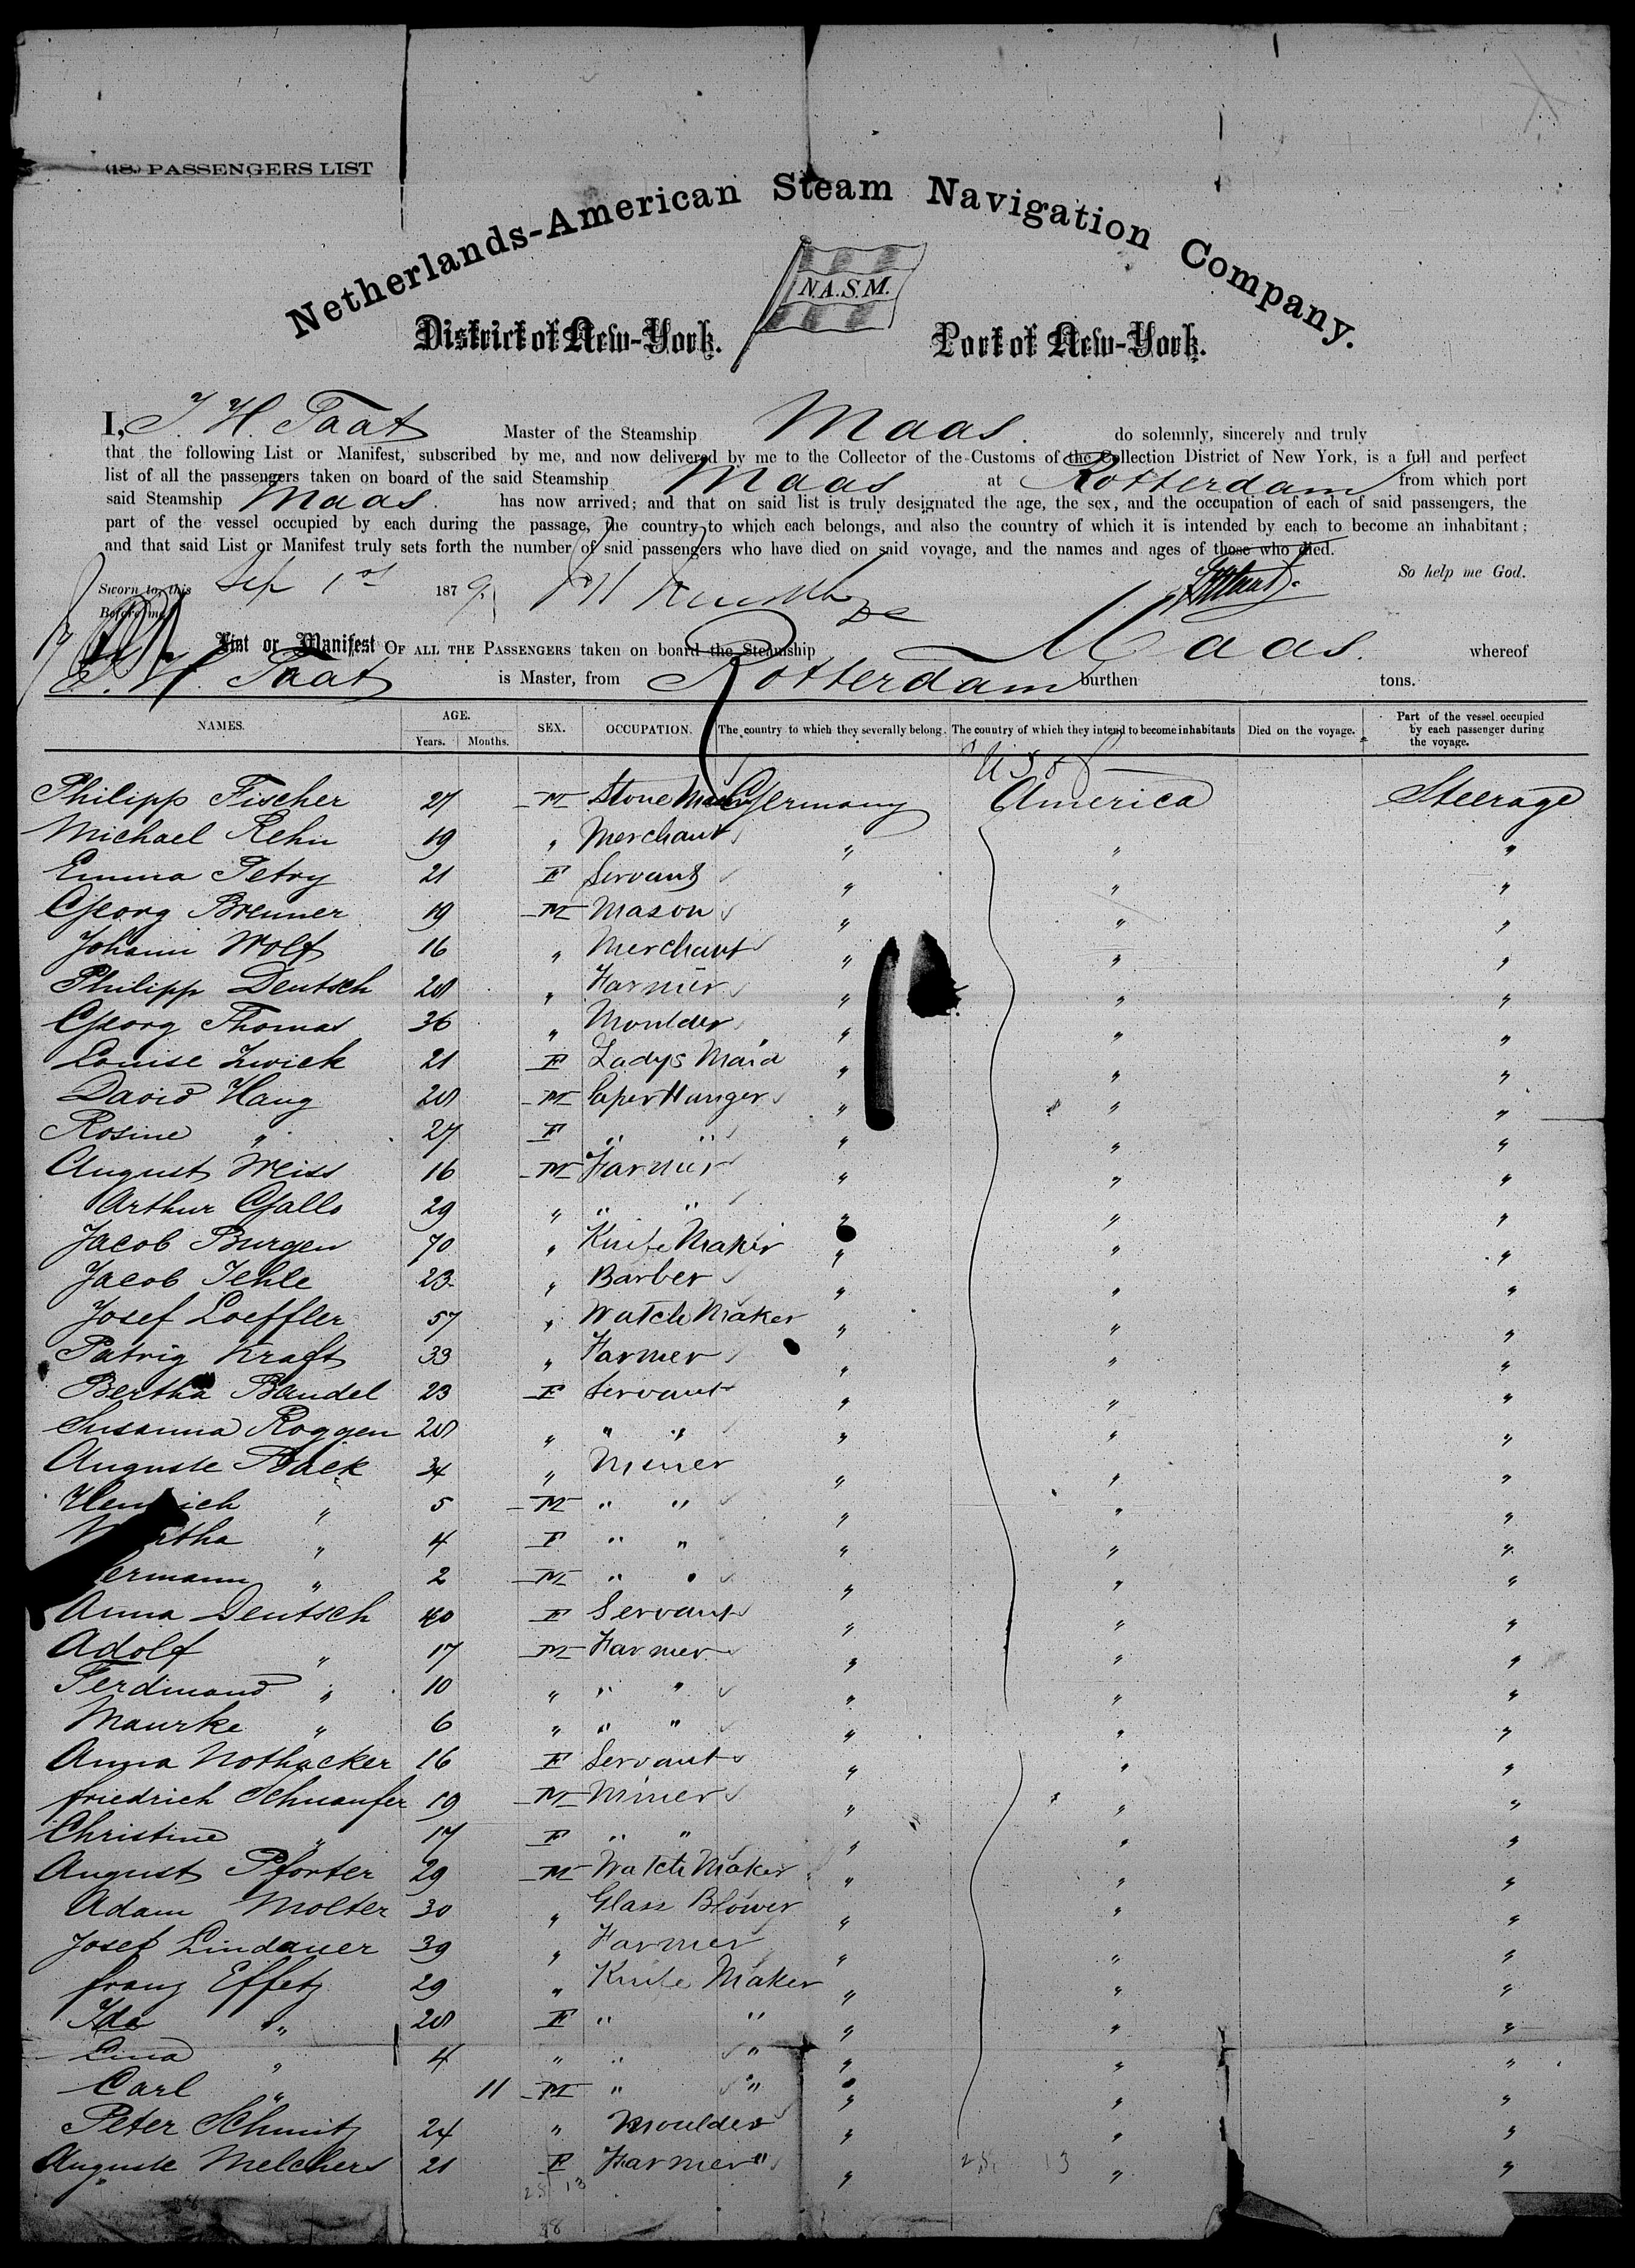 (18.) PASSENGERS LIST
Netherlands-American Steam Navigation Company.
N.A.S.M.
District of New-York. Port of New-York.
I, J. H. Taat Master of the Steamship Maas. do solemnly, sincerely and truly
that the following List or Manifest, subscribed by me, and now delivered by me to the Collector of the Customs of the Collection District of New York, is a full and perfect
list of all the passengers taken on board of the said Steamship Maas at Rotterdam from which port
said Steamship Maas. has now arrived; and that on said list is truly designated the age, the sex, and the occupation of each of said passengers, the
part of the vessel occupied by each during the passage, the country to which each belongs, and also the country of which it is intended by each to become an inhabitant;
and that said List or Manifest truly sets forth the number of said passengers who have died on said voyage, and the names and ages of those who died.
So help me God.
Sworn to this Sep 1st 1879.
Before me
List or Manifest OF ALL THE PASSENGERS taken on board the Steamship Maas. whereof
J. H. Taat is Master, from Rotterdam burthen tons.
NAMES. AGE. Years. Months. SEX. OCCUPATION. The country to which they severally belong. The country of which they intend to become inhabitants Died on the voyage. Part of the vessel occupied by each passenger during the voyage.
U S of
Philipp Fischer 27 M Stone Mason Germany America Steerage
Michael Rehn 19 " Merchant " " "
Emma Petry 21 F Servant " " "
Georg Brenner 19 M Mason " " "
Johann Wolf 16 " Merchant " " "
Philipp Deutsch 28 " Farmer " " "
Georg Thomas 36 " Moulder " " "
Louise Zwick 21 F Ladys Maid " " "
David Haug 28 M Paper Hunger " " "
Rosine " 27 F " " " " "
August Weiss 16 M Farmer " " "
Arthur Gallo 29 " " " " " "
Jacob Burgen 70 " Knife Maker " " "
Jacob Jehle 23 " Barber " " "
Josef Loeffler 57 " Watch Maker " " "
Patrig Kraft 33 " Farmer " " "
Bertha Bandel 23 F Servant " " "
Susanna Roggen 28 " " " " " "
Auguste Back 34 " Miner " " "
Heinrich " 5 M " " " " "
Martha " 4 F " " " " "
Hermann " 2 M " " " " "
Anna Deutsch 40 F Servant " " "
Adolf " 17 M Farmer " " "
Ferdinand " 10 " " " " " "
Maurke " 6 " " " " " "
Anna Nothacker 16 F Servant " " "
Friedrich Schnaufer 19 M Miner " " "
Christine " 17 F " " " " "
August Pforter 29 M Watch Maker " " "
Adam Molter 30 " Glass Blower " " "
Josef Lindauer 39 " Farmer " " "
Franz Effetz 29 " Knife Maker " " "
Ida " 28 F " " " " "
Lina " 4 " " " " " "
Carl " 11 M " " " " "
Peter Schmitz 24 " Moulder " " "
Auguste Melchers 21 F Farmer " " " "
25 13
25 13
38
38